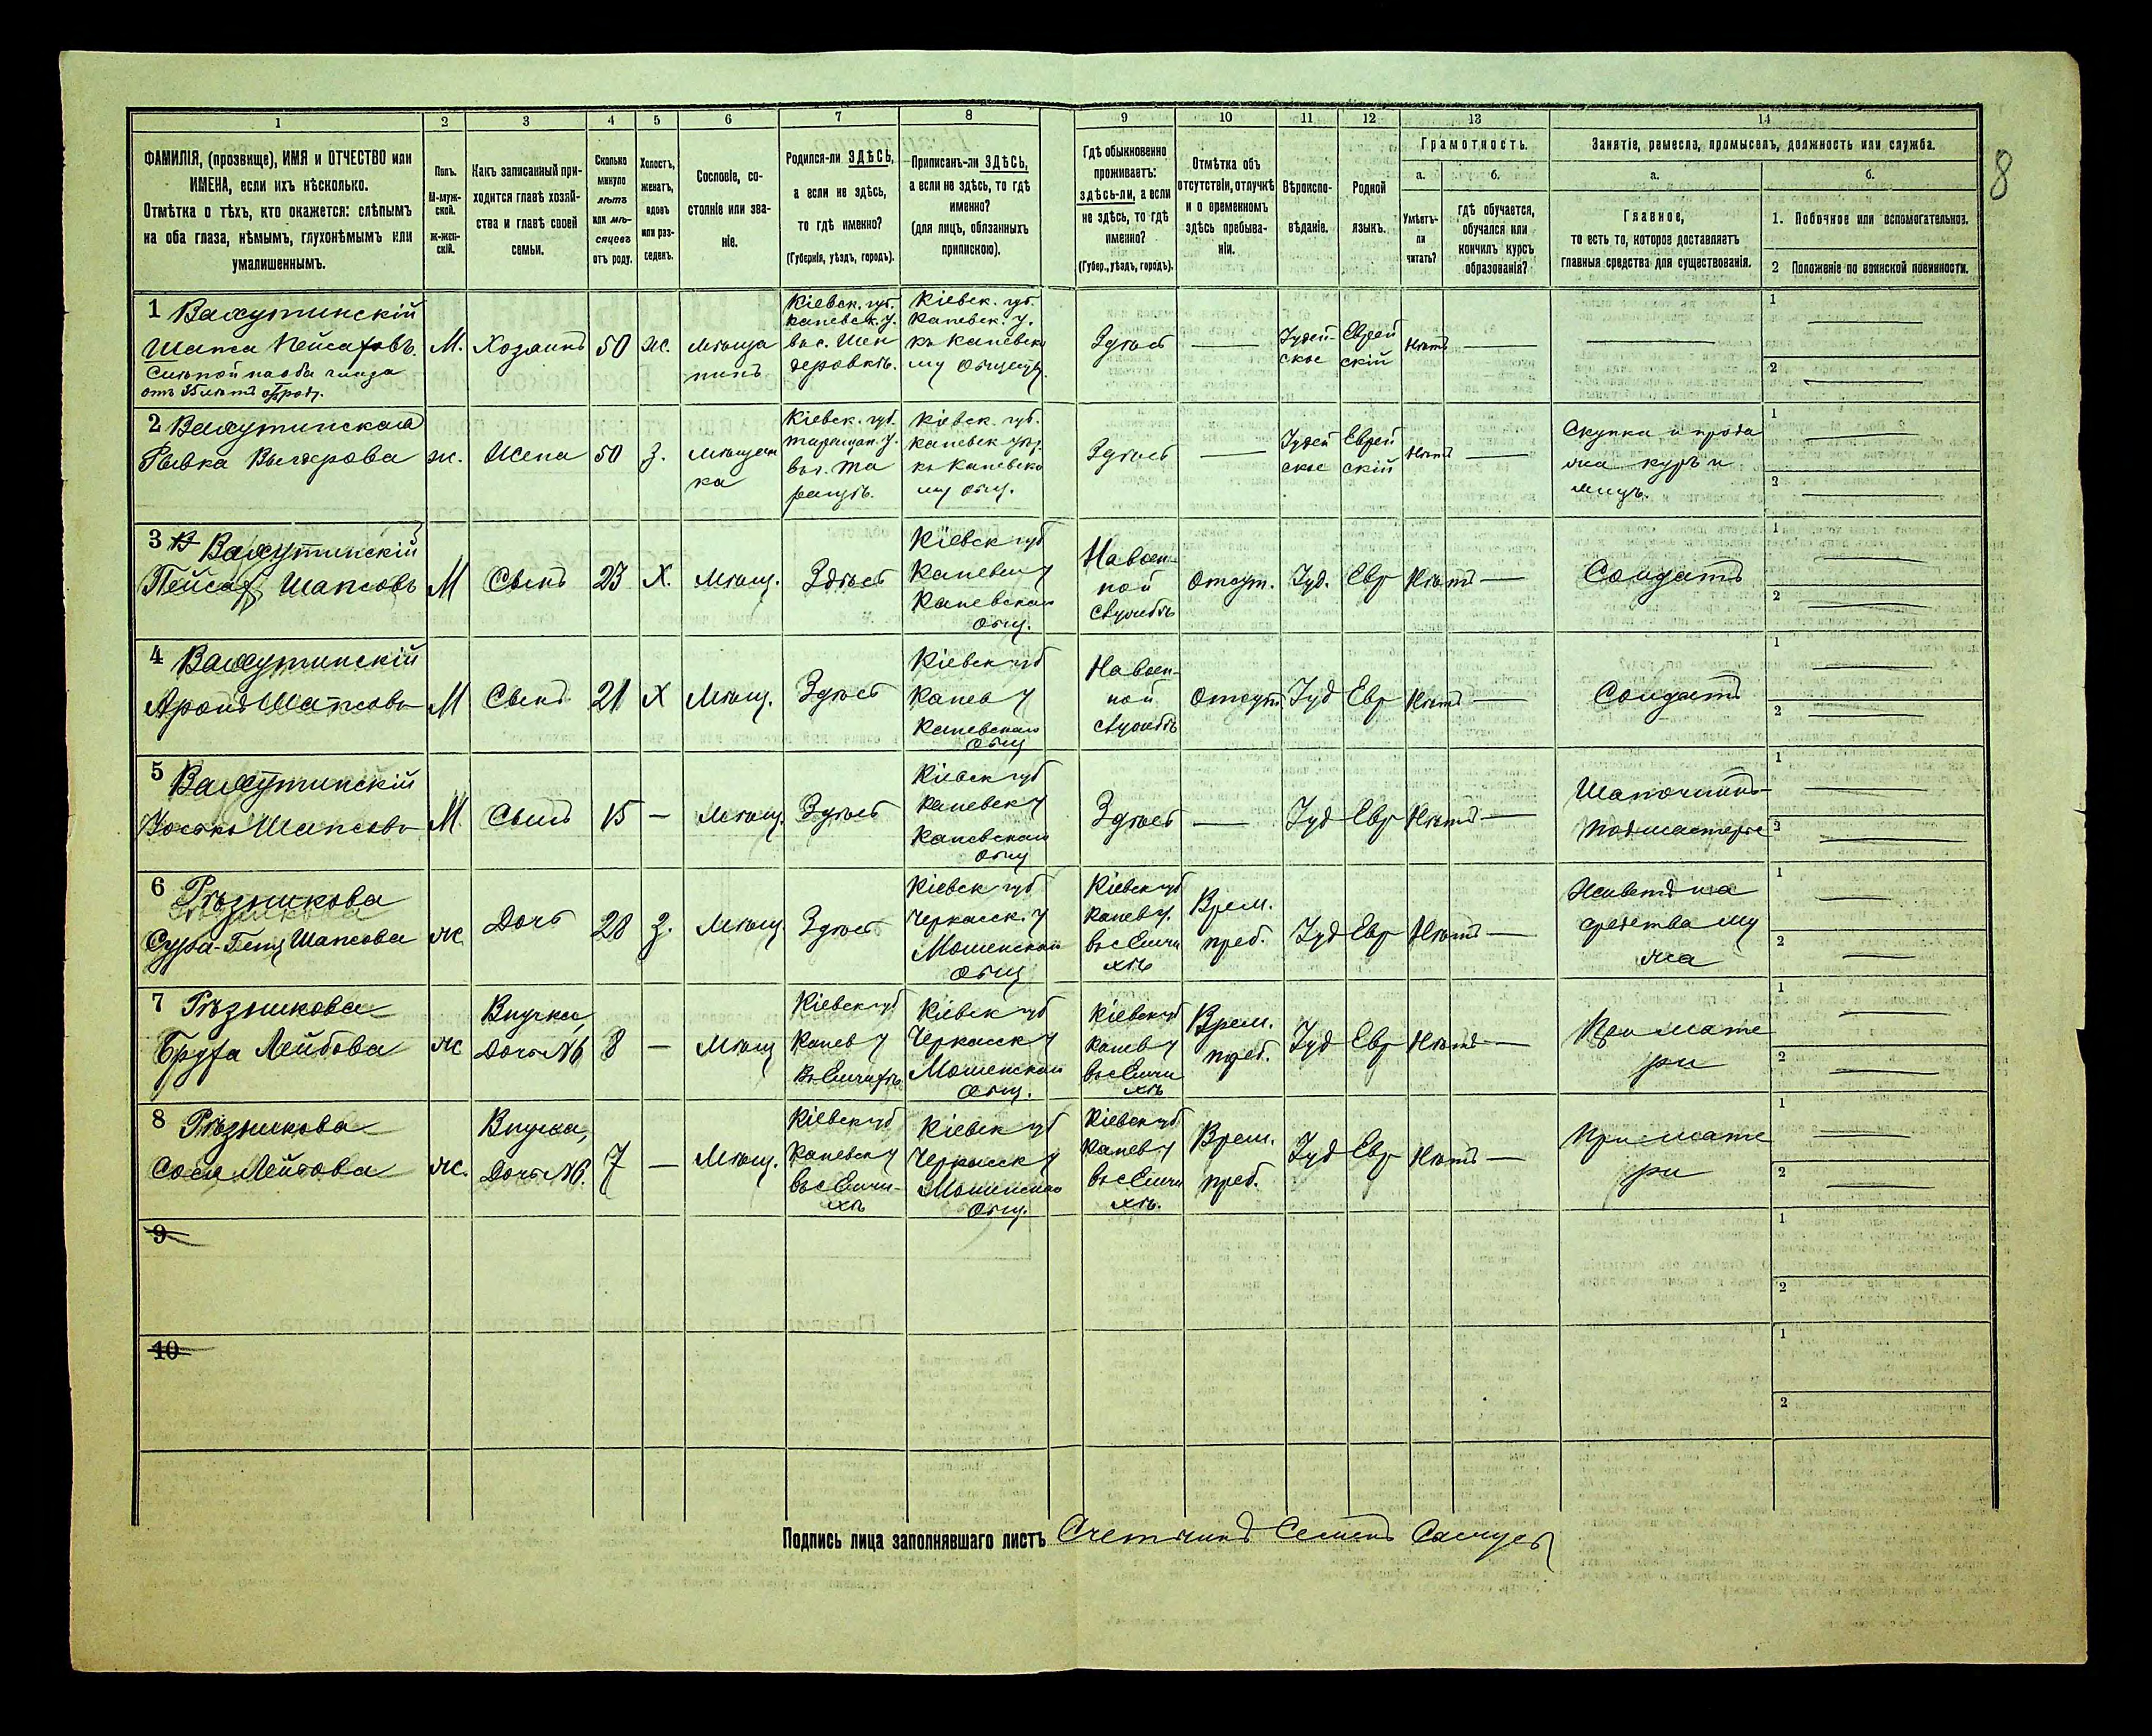 1
2
3
4
5
6
7
8
9
10
11
12
13
14
ФАМИЛІЯ, (прозвище), ИМЯ и ОТЧЕСТВО или
ИМЕНА, если ихъ нѣсколько.
Отмѣтка о тѣхъ, кто окажется: слѣпымъ
на оба глаза, нѣмымъ, глухонѣмымъ или
умалишеннымъ.
Полъ.
М-муж-
ской.
ж-жен-
скій.
Какъ записанный при-
ходится главѣ хозяй-
ства и главѣ своей
семьи.
Сколько
минуло
лѣтъ
или мѣ-
сяцевъ
отъ роду.
Холостъ,
женатъ,
вдовъ
или раз-
веденъ.
Сословіе, со-
стояніе или зва-
ніе.
Родился-ли ЗДѢСЬ,
а если не здѣсь,
то гдѣ именно?
(Губернія, уѣздъ, городъ).
Приписанъ-ли ЗДѢСЬ,
а если не здѣсь, то гдѣ
именно?
(для лицъ, обязанныхъ
припискою).
Гдѣ обыкновенно
проживаетъ:
здѣсь-ли, а если
не здѣсь, то гдѣ
именно?
(Губер., уѣздъ, городъ).
Отмѣтка объ
отсутствіи, отлучкѣ
и о временномъ
здѣсь пребыва-
ніи.
Вѣроиспо-
вѣданіе.
Родной
языкъ.
Грамотность.
а.
Умѣетъ-
ли
читать?
б.
гдѣ обучается,
обучался или
кончилъ курсъ
образованія?
Занятіе, ремесло, промыселъ, должность или служба.
а.
Главное,
то есть то, которое доставляетъ
главныя средства для существованія.
б.
1. Побочное или вспомогательное.
2 Положеніе по воинской повинности.
8
1 Валхутинскій
Шапса Пейсаховъ.
Слѣпой на оба глаза
отъ 35 лѣтъ
М.
Хозяинъ
50
ж.
мѣща
нинъ
Кіевск. губ.
Каневск. у.
въ с. Шен
деровкѣ.
Кіевск. губ.
Каневск. у.
къ Каневско
му Общецу.
Здѣсь
—
Іудей-
ское
Еврей
скій
Нѣтъ
—
—
1
2
2 Валхутинская
Рывка
ж.
Жена
50
З.
мѣщан
ка
Кіевск. губ.
таращан. у.
въ с. Та
ращѣ.
Кіевск. губ.
Каневск. у.
къ Каневско
му Общ.
Здѣсь
—
Іудей
ское
Еврей
скій
Нѣтъ
—
Скупка и прода
жа куръ и
яицъ.
1
2
3 Валхутинскій
Пейсах Шапсовъ
М
Сынъ
23
Х.
Мѣщ.
Здѣсь
Кіевск губ
Каневск у
Каневскаго
Общ.
На воен-
ной
службѣ
Отсут.
Іуд.
Евр
Нѣтъ
—
Солдатъ
1
2
4 Валхутинскій
Аронъ Шапсовъ
М
Сынъ
21
Х
Мѣщ.
Здѣсь
Кіевск губ
Канев у
Каневскаго
Общ
На воен-
ной
службѣ
Отсут
Іуд
Евр
Нѣтъ
—
Солдатъ
1
2
5 Валхутинскій
Іосько Шапсовъ
М
Сынъ
15
—
Мѣщ.
Здѣсь
Кіевск губ
Каневск у
Каневскаго
Общ
Здѣсь
—
Іуд
Евр
Нѣтъ
—
Шапочникъ
подмастерье
1
2
6 Рѣзникова
Сура-Гени Шапсова
ж
Дочь
28
З.
Мѣщ.
Здѣсь
Кіевск губ
Черкасск. у
Мошенскаго
Общ
Кіевск губ
Канев у.
въ с Емчи
хѣ
Врем.
преб.
Іуд
Евр
Нѣтъ
—
Живетъ на
средства му
жа
1
2
7 Рѣзникова
Бруха Лейбова
ж
Внучка,
Дочь №6
8
—
Мѣщ
Кіевск губ
Канев у
въ Емчихѣ
Кіевск губ
Черкасск у
Мошенскаго
Общ.
Кіевск губ
Канев у
въ с Емчи
хѣ
Врем.
преб.
Іуд
Евр
Нѣтъ
—
При мате
ри
1
2
8 Рѣзникова
Сося Лейбова
ж.
Внучка,
Дочь №6.
7
—
Мѣщ.
Кіевск губ
Каневск у
въ с Емчи-
хѣ
Кіевск губ
Черкасск у
Мошенскаго
Общ.
Кіевск губ
Канев у
въ с Емчи
хѣ.
Врем.
преб.
Іуд
Евр
Нѣтъ
—
При мате
ри
1
2
9
1
2
10
1
2
Подпись лица заполнявшаго листъ Счетчикъ Семенъ